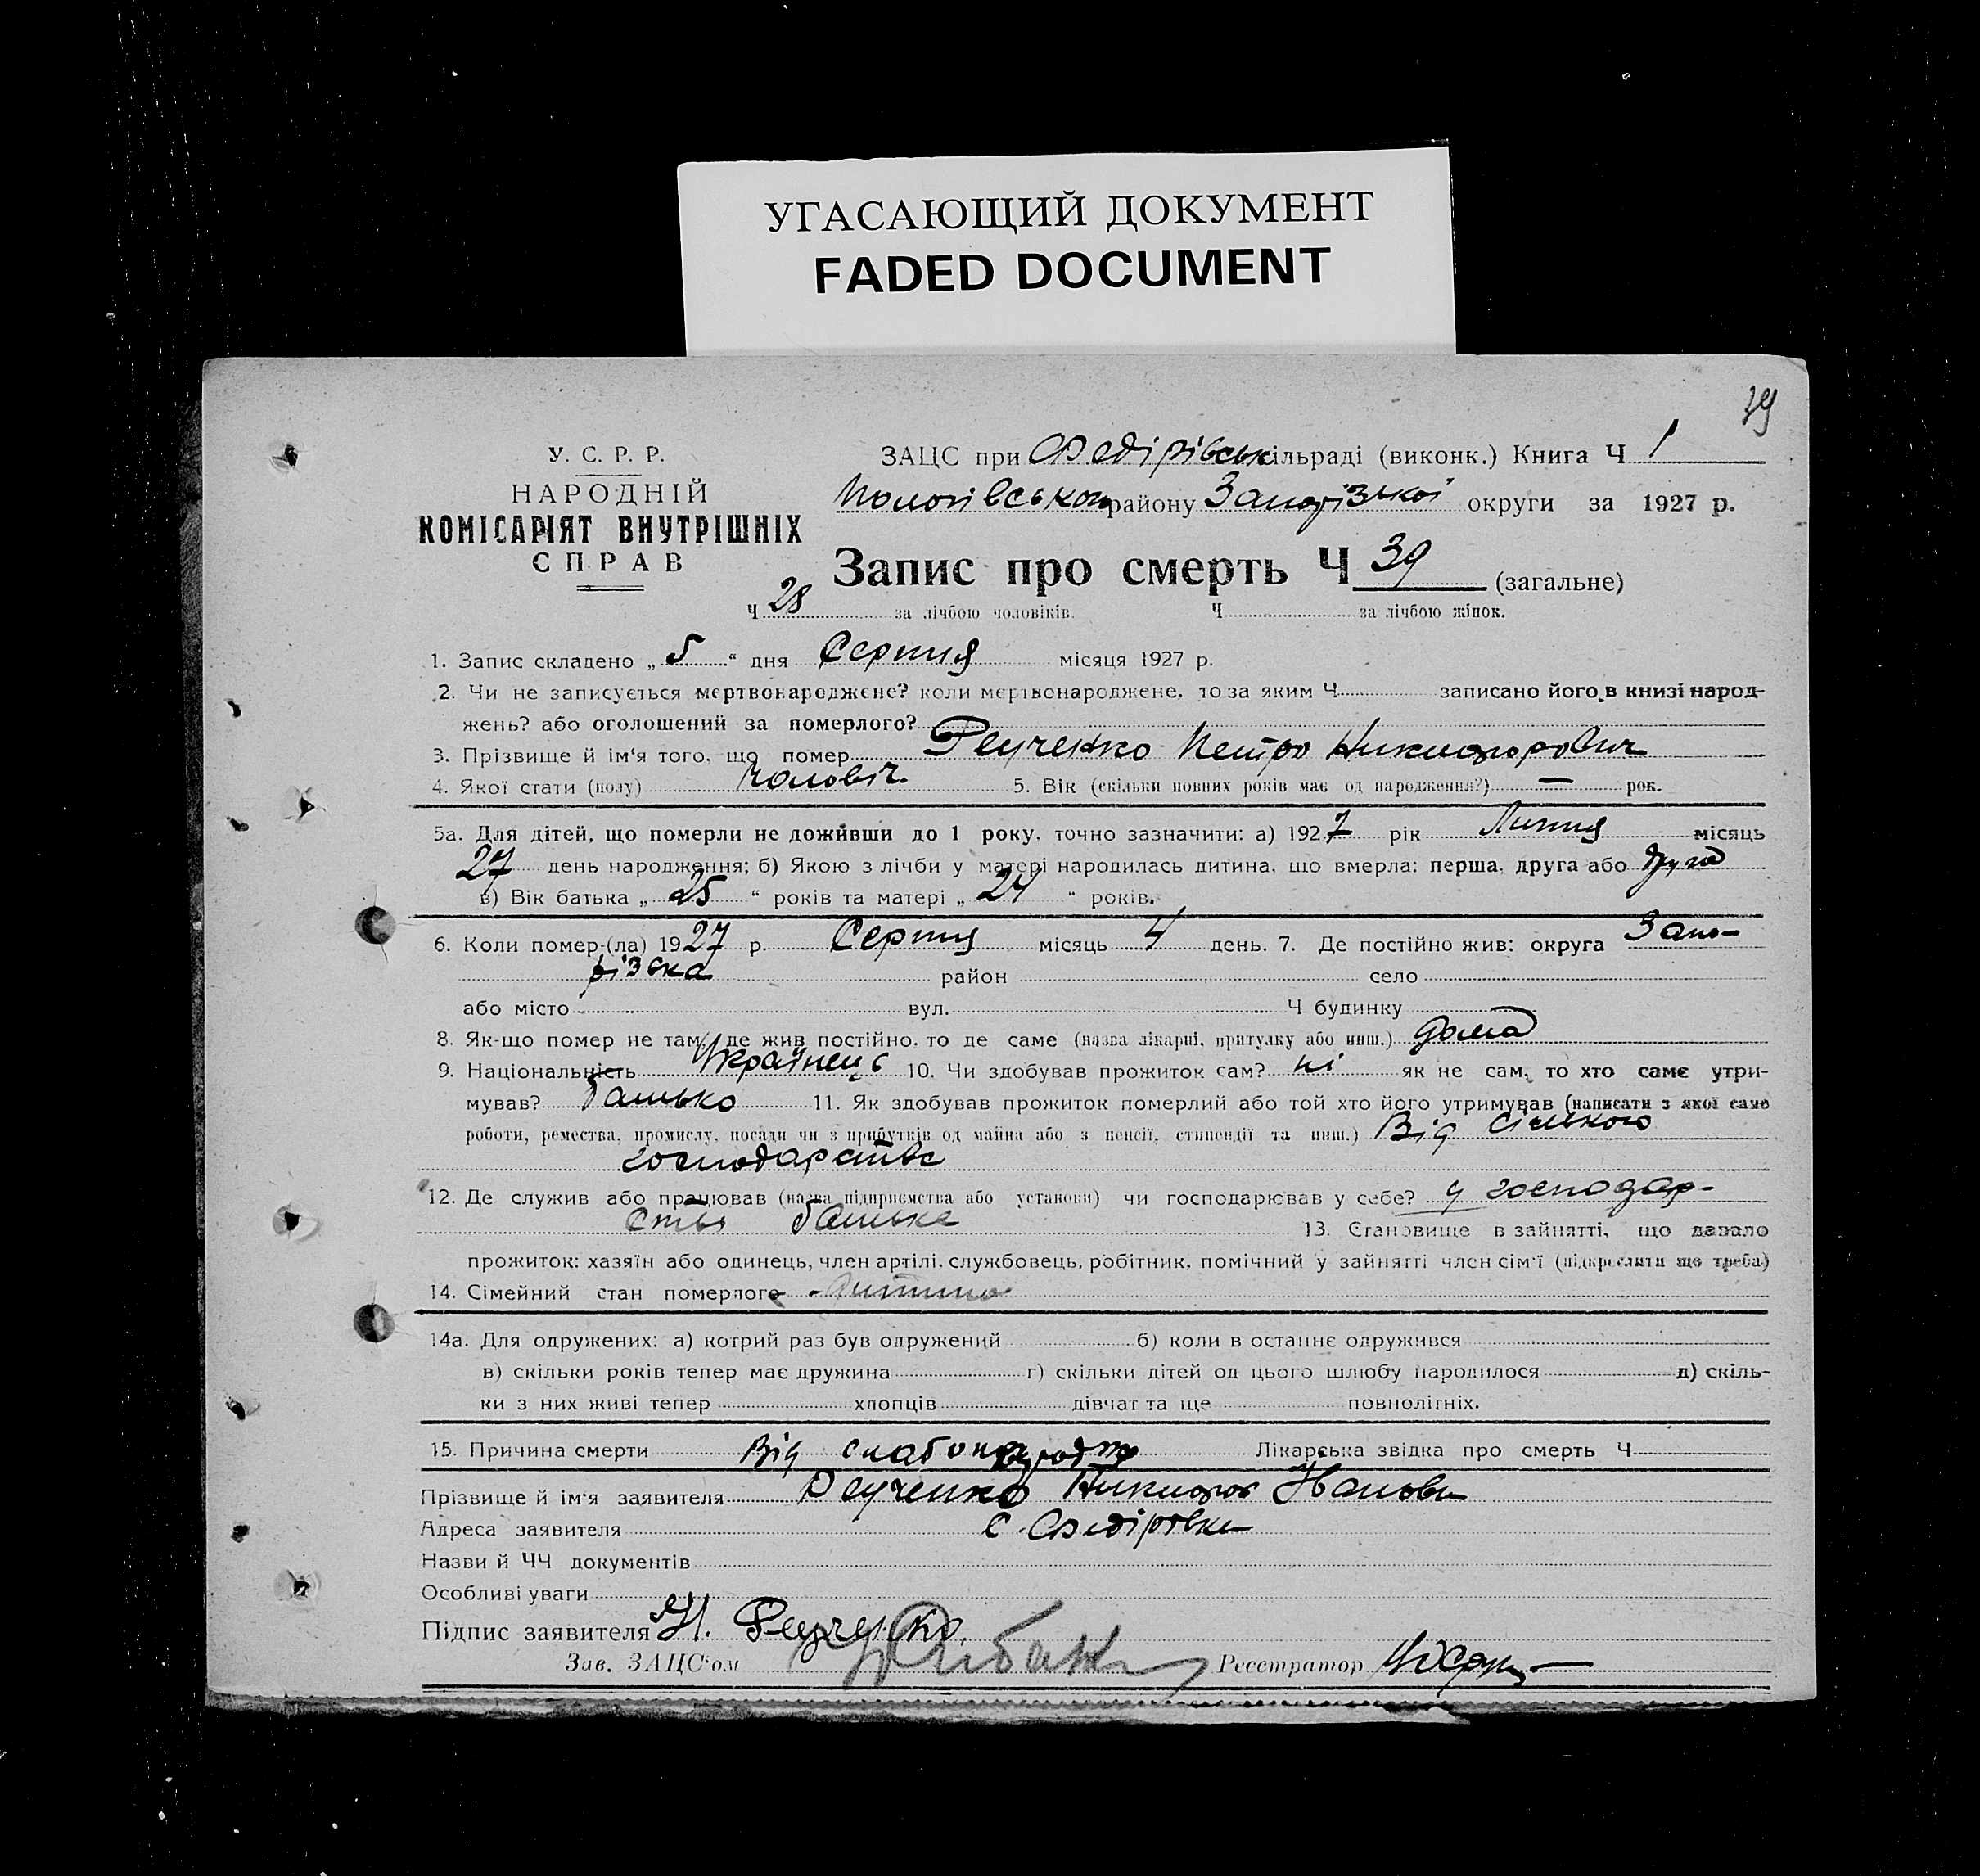 УГАСАЮЩИЙ ДОКУМЕНТ
FADED DOCUMENT
39
У. С. Р. Р.
НАРОДНІЙ
КОМІСАРІЯТ ВНУТРІШНІХ
СПРАВ
ЗАЦС при Федірівськ сільраді (виконк.) Книга Ч 1
Пологівського району Запорізької округи за 1927 р.
Запис про смерть Ч 39 (загальне)
Ч 28 за лічбою чоловіків. Ч за лічбою жінок.
1. Запис складено „ 5 “ дня Серпня місяця 1927 р.
2. Чи не записується мертвонароджене? коли мертвонароджене, то за яким Ч записано його в книзі народ-
жень? або оголошений за померлого?
3. Прізвище й ім‘я того, що помер Реученко Петро Никифорович
4. Якої стати (полу) чоловіч. 5. Вік (скільки повних років має од народження?) — рок.
5а. Для дітей, що померли не доживши до 1 року, точно зазначити: а) 1927 рік Липня місяць
27 день народження; б) Якою з лічби у матері народилась дитина, що вмерла: перша, друга або друга
в) Вік батька „ 25 “ років та матері „ 24 “ років.
6. Коли помер-(ла) 1927 р. Серпня місяць 4 день. 7. Де постійно жив: округа Запо-
різька район село
або місто вул. Ч будинку
8. Як-що помер не там, де жив постійно, то де саме (назва лікарні, притулку або инш.) дома
9. Національність Українець 10. Чи здобував прожиток сам? ні як не сам, то хто саме утри-
мував? батько 11. Як здобував прожиток померлий або той хто його утримував (написати з якої саме
роботи, ремества, промислу, посади чи з прибутків од майна або з пенсії, стипендії та инш.) Від сільського
господарства
12. Де служив або працював (назва підприємства або установи) чи господарював у себе? у господар-
стві батька 13. Становище в зайнятті, що давало
прожиток: хазяїн або одинець, член артілі, службовець, робітник, помічний у зайнятті член сім‘ї (підкреслити що треба)
14. Сімейний стан померлого дитина
14а. Для одружених: а) котрий раз був одружений б) коли в останнє одружився
в) скільки років тепер має дружина г) скільки дітей од цього шлюбу народилося д) скіль-
ки з них живі тепер хлопців дівчат та ще повнолітніх.
15. Причина смерти Від Лікарська звідка про смерть Ч
Прізвище й ім‘я заявителя Реученко Никифор Іванови
Адреса заявителя с. Федірівка
Назви й ЧЧ документів
Особливі уваги
Підпис заявителя Н. Реученко.
Зав. ЗАЦС‘ом Реєстратор